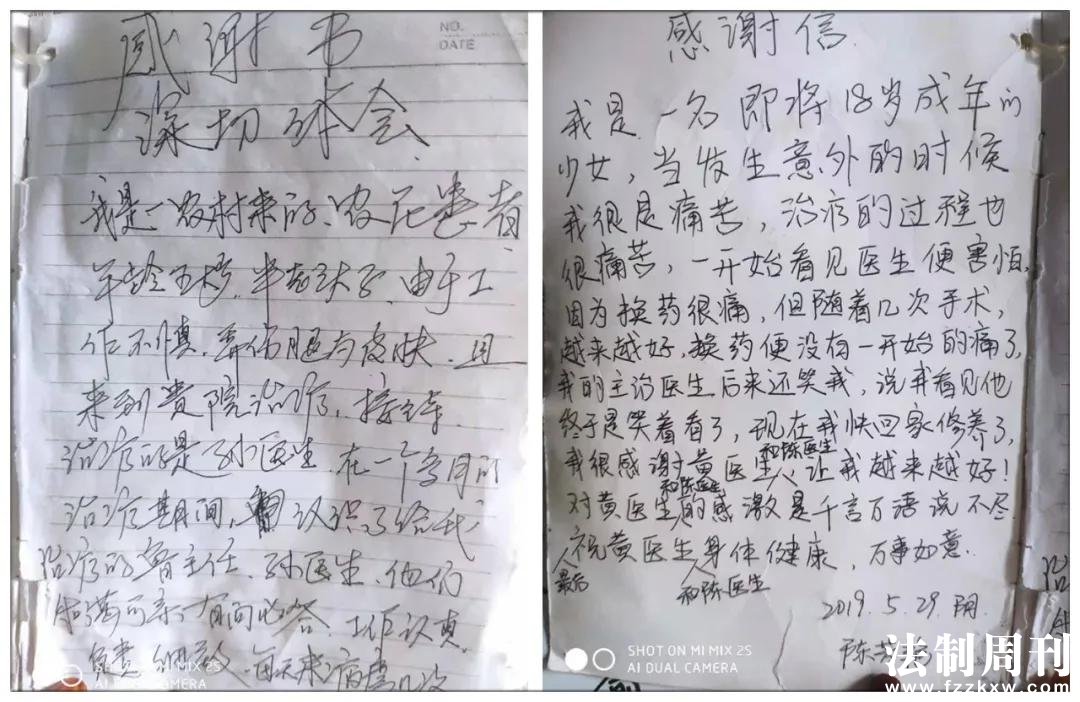 NO.
DATE
感谢书
深切体会
我是一农村来的农民患者
年龄五拾 由于工
作不慎,弄伤腿与皮肤,且
来到贵院治疗,接待
治疗的是孙医生,在一个多月的
治疗期间, 认识了给我
治疗的曾主任、孙医生,他们
和蔼可亲 有问必答、工作认真
负责 细 每天来病房几次
SHOT ON MI MIX 2S
AI DUAL CAMERA
感谢信
我是一名即将18岁成年的
少女,当发生意外的时候
我很是痛苦,治疗的过程也
很痛苦,一开始看见医生便害怕,
因为换药很痛,但随着几次手术,
越来越好,换药便没有一开始的痛了,
我的主治医生后来还笑我,说我看见他
终于是笑着看了,现在我快回家修养了,
我很感谢黄医生和陈医生让我越来越好!
对黄医生和陈医生的感激是千言万语说不尽
最后祝黄医生和陈医生身体健康,万事如意.
2019.5.29.阴.
陈
SHOT ON MI MIX 2S
AI DUAL CAMERA
法制周刊
www.fzzkxw.com